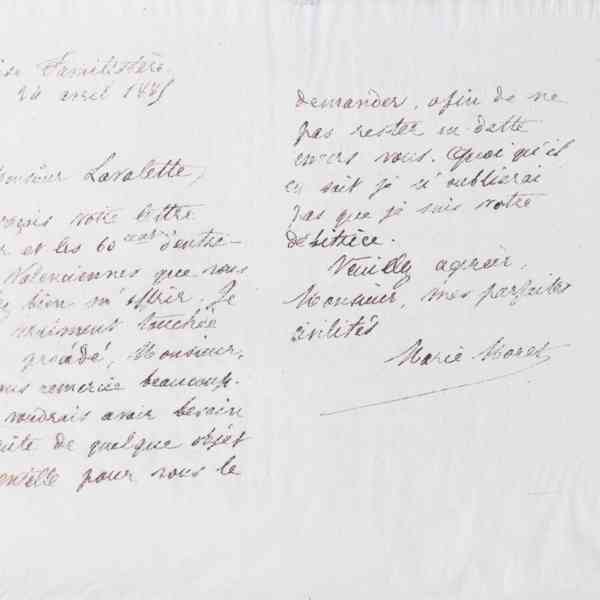 Familistère
24 avril 18
Monsieur Lavalette,
reçois votre lettre
et les 60 d'entre-
Valenciennes que vous
bien m'offrir. Je
vraiment touchée
procédé, Monsieur,
vous remercie beaucoup.
voudrais avoir besoin
suite de quelque objet
pour vous le
demander, afin de ne
pas rester en dette
envers vous. Quoi qu'il
en soit je n'oublierai
pas que je suis votre
débitrice.
Veuillez agréer,
Monsieur, mes parfaites
civilités
Marie Moret